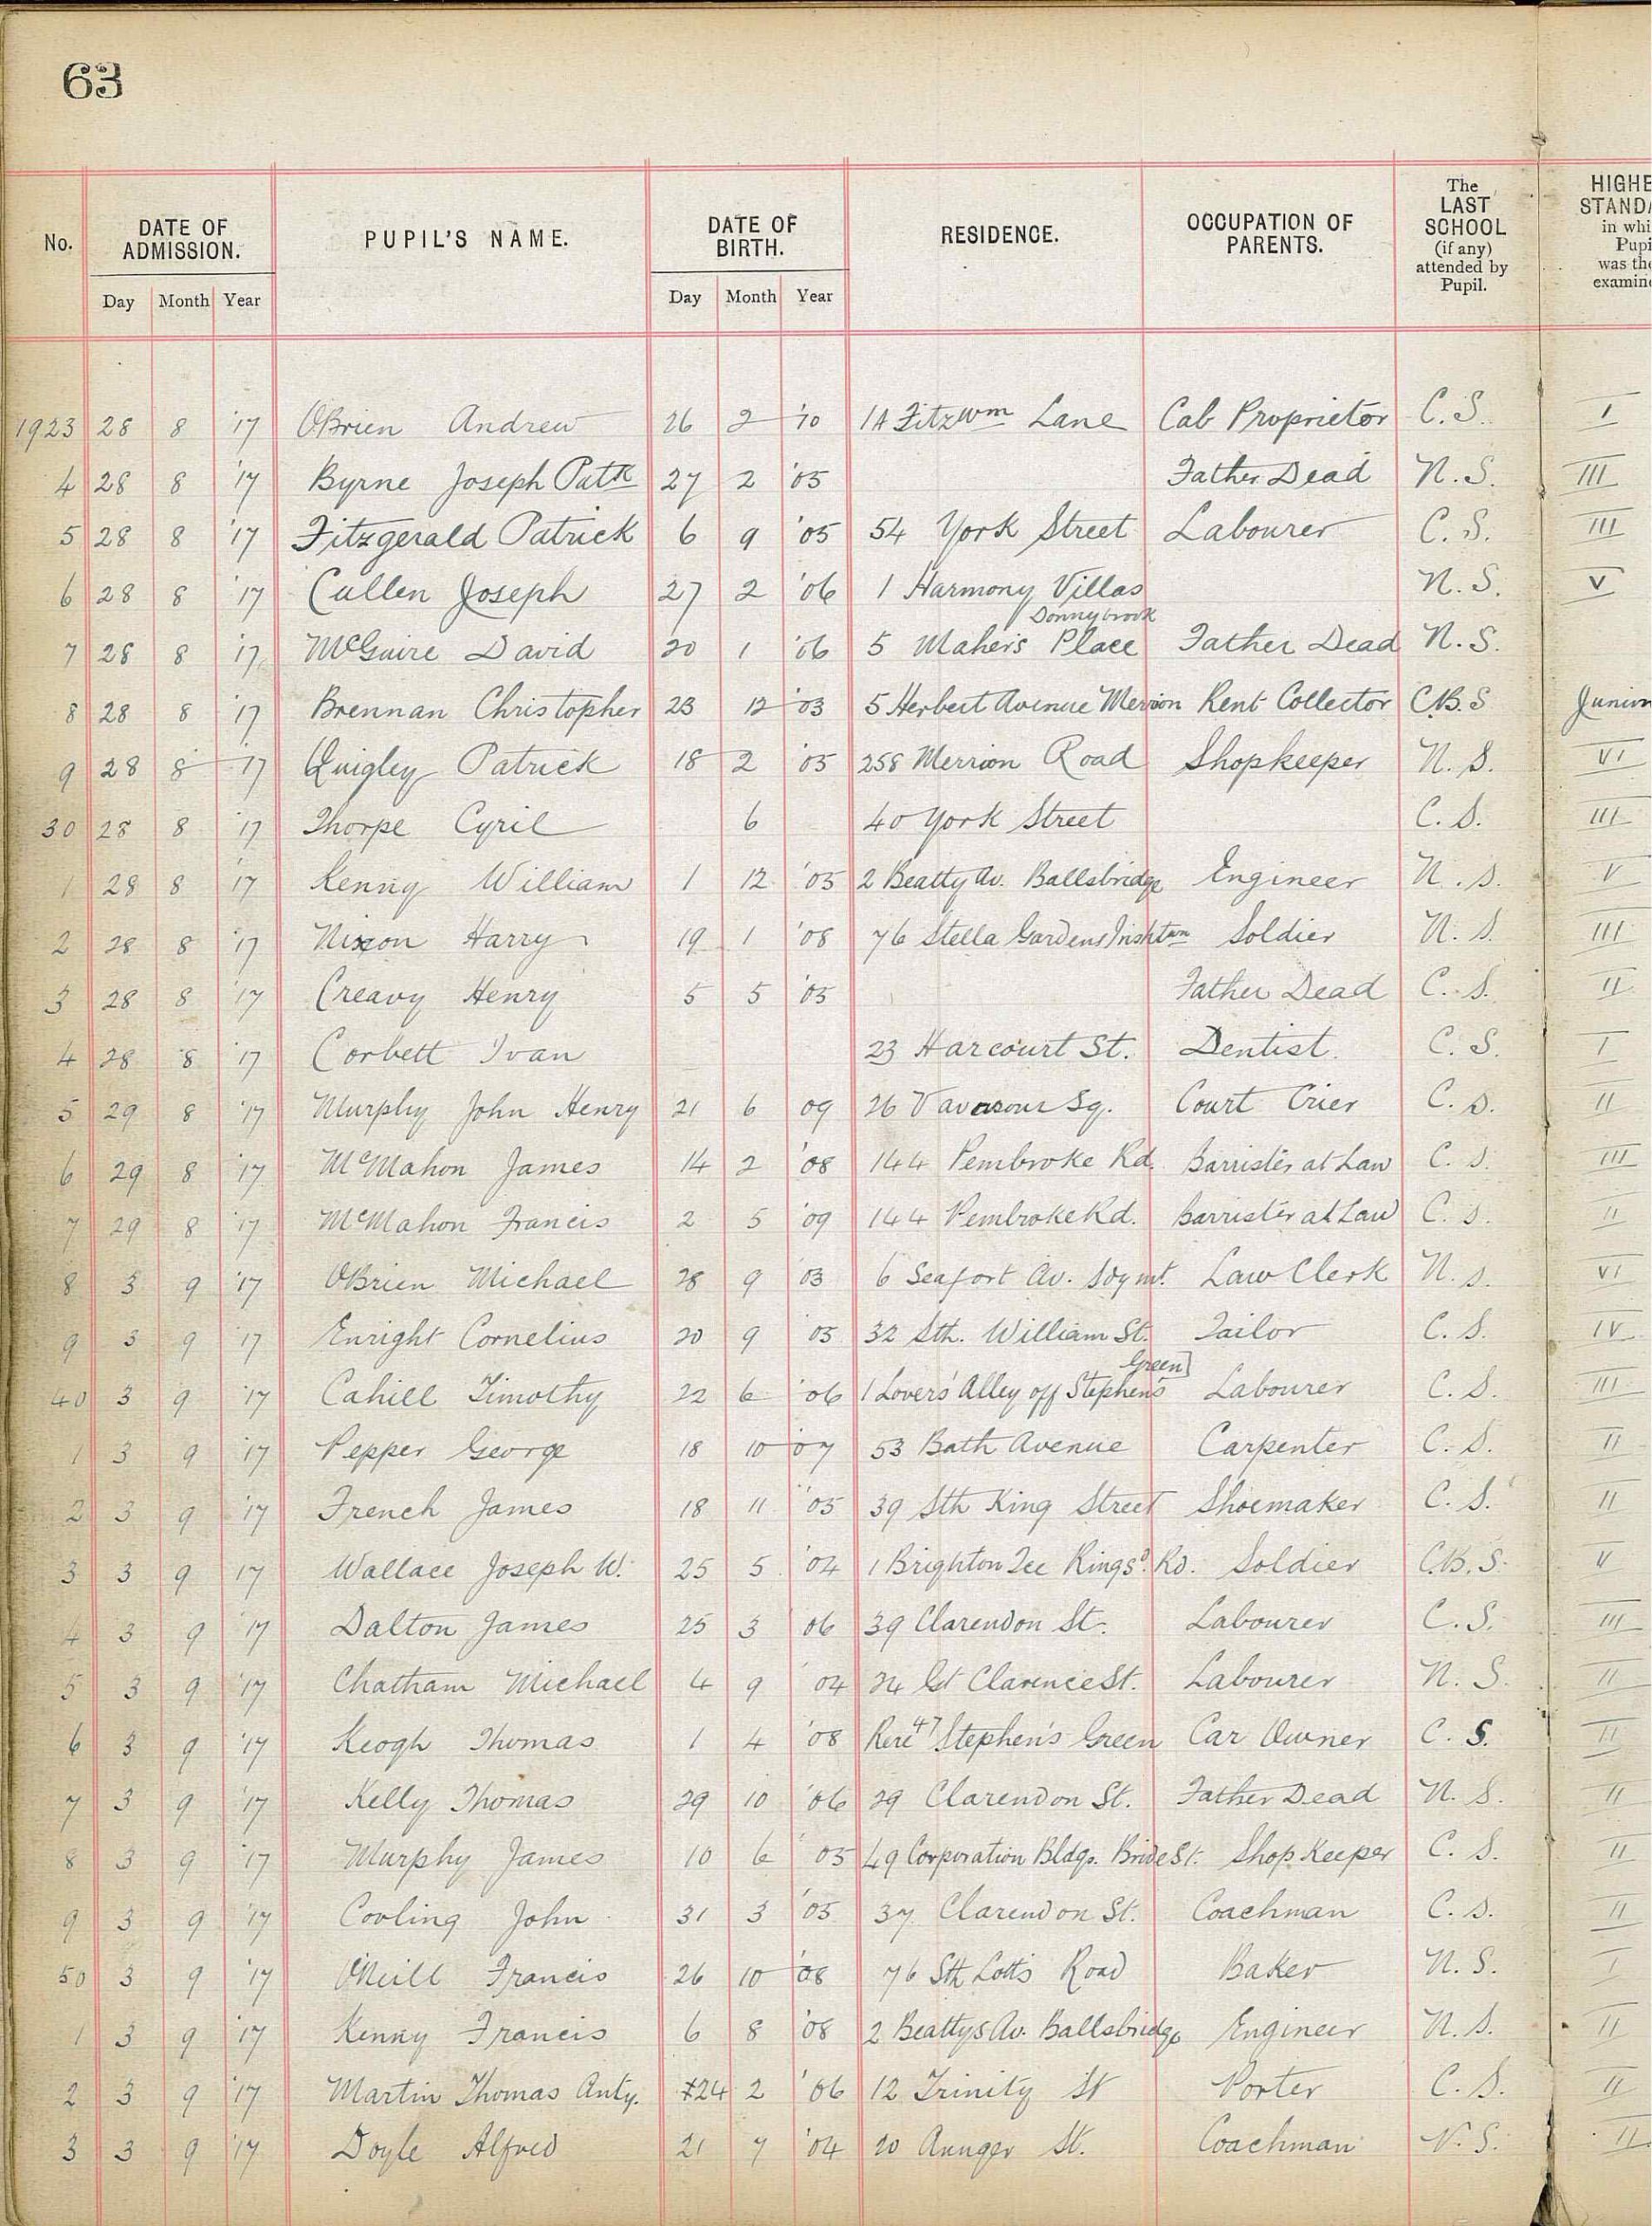 63
No. DATE OF ADMISSION. PUPIL'S NAME. DATE OF BIRTH. RESIDENCE. OCCUPATION OF PARENTS. The LAST SCHOOL (if any) attended by Pupil. HIGHE STANDA in whi Pupi was the examine
Day Month Year Day Month Year
1923 28 8 '17 O'Brien Andrew 26 2 '10 1A Fitzwm Lane Cab Proprietor C.S. I
4 28 8 '17 Byrne Joseph Patk 27 2 '05 Father Dead N.S. III
5 28 8 '17 Fitzgerald Patrick 6 9 '05 54 York Street Labourer C.S. III
6 28 8 '17 Cullen Joseph 27 2 '06 1 Harmony Villas N.S. V
Donnybrook
7 28 8 '17 McGuire David 20 1 '06 5 Maher's Place Father Dead N.S.
8 28 8 '17 Brennan Christopher 23 12 '03 5 Herbert Avenue Merrion Rent Collector C.B.S Junior
9 28 8 '17 Quigley Patrick 18 2 '05 258 Merrion Road Shopkeeper N.S. VI
30 28 8 '17 Thorpe Cyril 6 40 York Street C.S. III
1 28 8 '17 Kenny William 1 12 '05 2 Beatty Av. Ballsbridge Engineer N.S. V
2 28 8 '17 Nixon Harry 19 1 '08 76 Stella Gardens Irishtwn Soldier N.S. III
3 28 8 '17 Creavy Henry 5 5 '05 Father Dead C.S. II
4 28 8 '17 Corbett Ivan 23 Harcourt St. Dentist C.S. I
5 29 8 '17 Murphy John Henry 21 6 09 26 Vavasour Sq. Court Crier C.S. II
6 29 8 '17 McMahon James 14 2 '08 144 Pembroke Rd. Barrister at Law C.S. III
7 29 8 '17 McMahon Francis 2 5 '09 144 Pembroke Rd. Barrister at Law C.S. II
8 3 9 '17 O'Brien Michael 28 9 '03 6 Seafort Av. Sdymt. Law Clerk N.S. VI
9 3 9 '17 Enright Cornelius 20 9 '05 32 Sth. William St. Tailor C.S. IV
Green]
40 3 9 '17 Cahill Timothy 22 6 '06 1 Lovers' Alley off Stephen's Labourer C.S. III
1 3 9 '17 Pepper George 18 10 '07 53 Bath Avenue Carpenter C.S. II
2 3 9 '17 French James 18 11 '05 39 Sth King Street Shoemaker C.S. II
3 3 9 '17 Wallace Joseph W. 25 5 '04 1 Brighton Tce Kingsd. Rd. Soldier C.B.S. V
4 3 9 '17 Dalton James 25 3 '06 39 Clarendon St. Labourer C.S. III
5 3 9 '17 Chatham Michael 4 9 '04 24 Gt Clarence St. Labourer N.S. II
6 3 9 '17 Keogh Thomas 1 4 '08 Rere 47 Stephen's Green Car Owner C.S. II
7 3 9 '17 Kelly Thomas 29 10 '06 29 Clarendon St. Father Dead N.S. II
8 3 9 '17 Murphy James 10 6 '05 49 Corporation Bldgs. Bride St. Shop Keeper C.S. II
9 3 9 '17 Cooling John 31 3 '05 37 Clarendon St. Coachman C.S. II
50 3 9 '17 O'Neill Francis 26 10 '08 76 Sth Lotts Road Baker N.S. I
1 3 9 '17 Kenny Francis 6 8 '08 2 Beattys Av. Ballsbridge Engineer N.S. II
2 3 9 '17 Martin Thomas Anty. 24 2 '06 12 Trinity St Porter C.S. II
3 3 9 '17 Doyle Alfred 21 7 '04 20 Aungier St. Coachman N.S. II